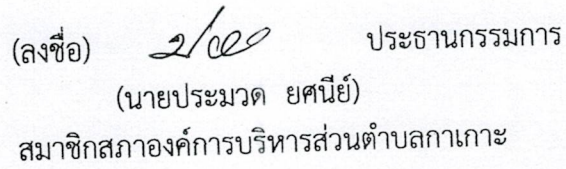 (ลงชื่อ) ประธานกรรมการ
(นายประมวด ยศนีย์)
สมาชิกสภาองค์การบริหารส่วนตำบลกาเกาะ